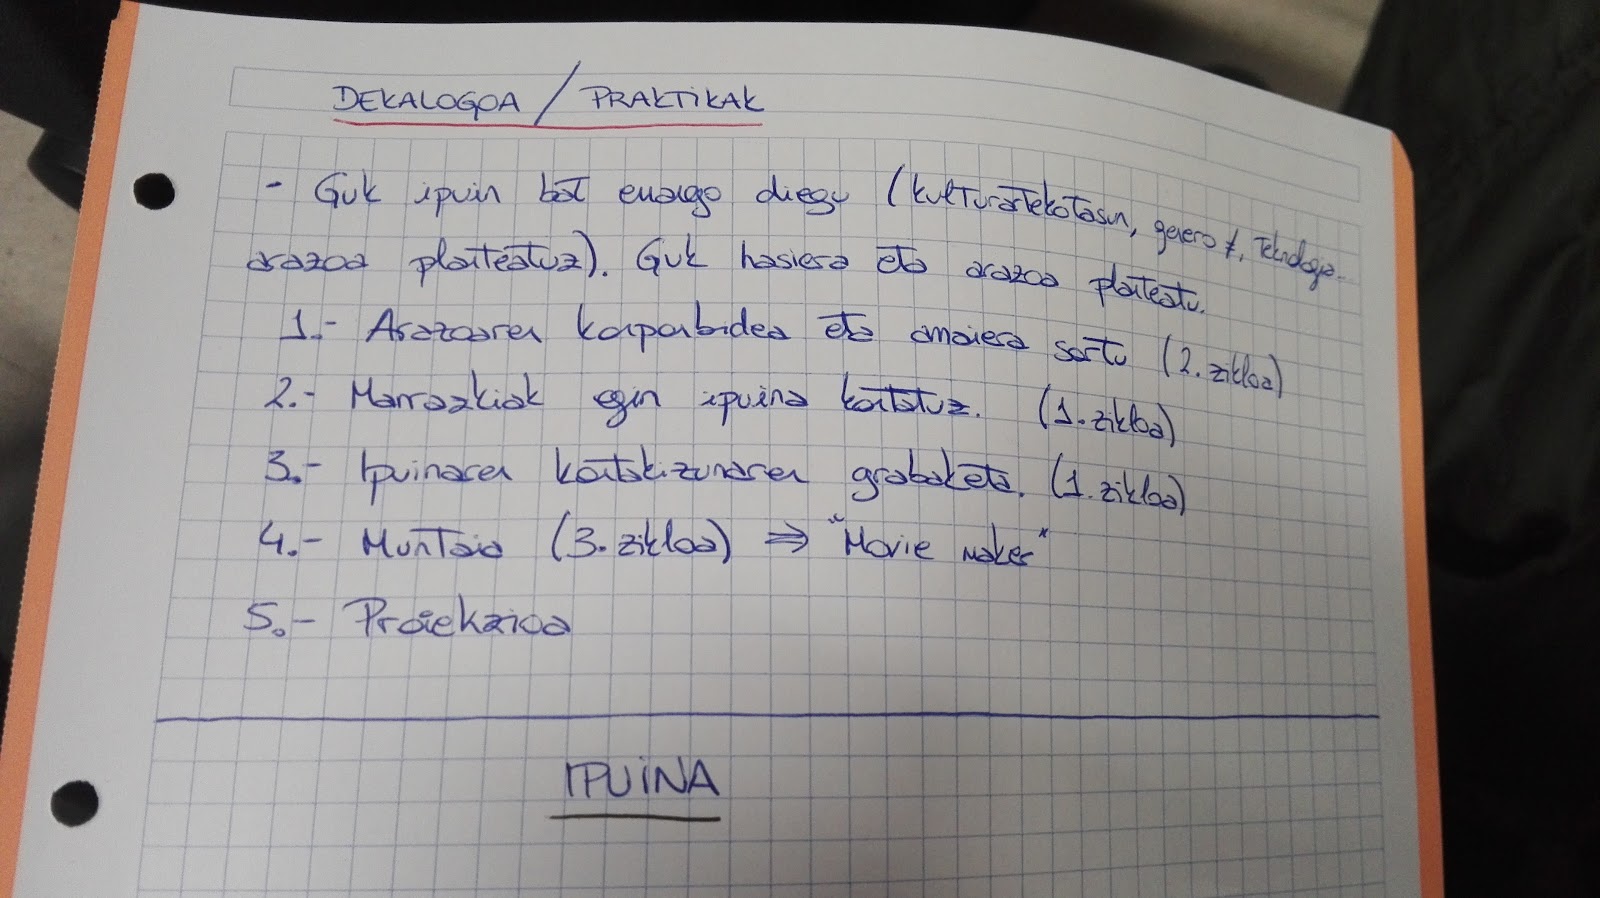 DEKALOGOA / PRAKTIKAK
- Guk ipuin bat emango diegu (kulturartekotasun, genero ≠, teknologia..
arazoa planteatuz). Guk hasiera eta arazoa planteatu.
1.- Arazoaren konponbidea eta amaiera sortu (2. zikloa)
2.- Marrazkiak egin ipuina kontatuz. (1. zikloa)
3.- Ipuinaren kontakizunaren grabaketa. (1. zikloa)
4.- Muntaia (3. zikloa) ⇒ "Movie maker"
5.- Proiekzioa
IPUINA